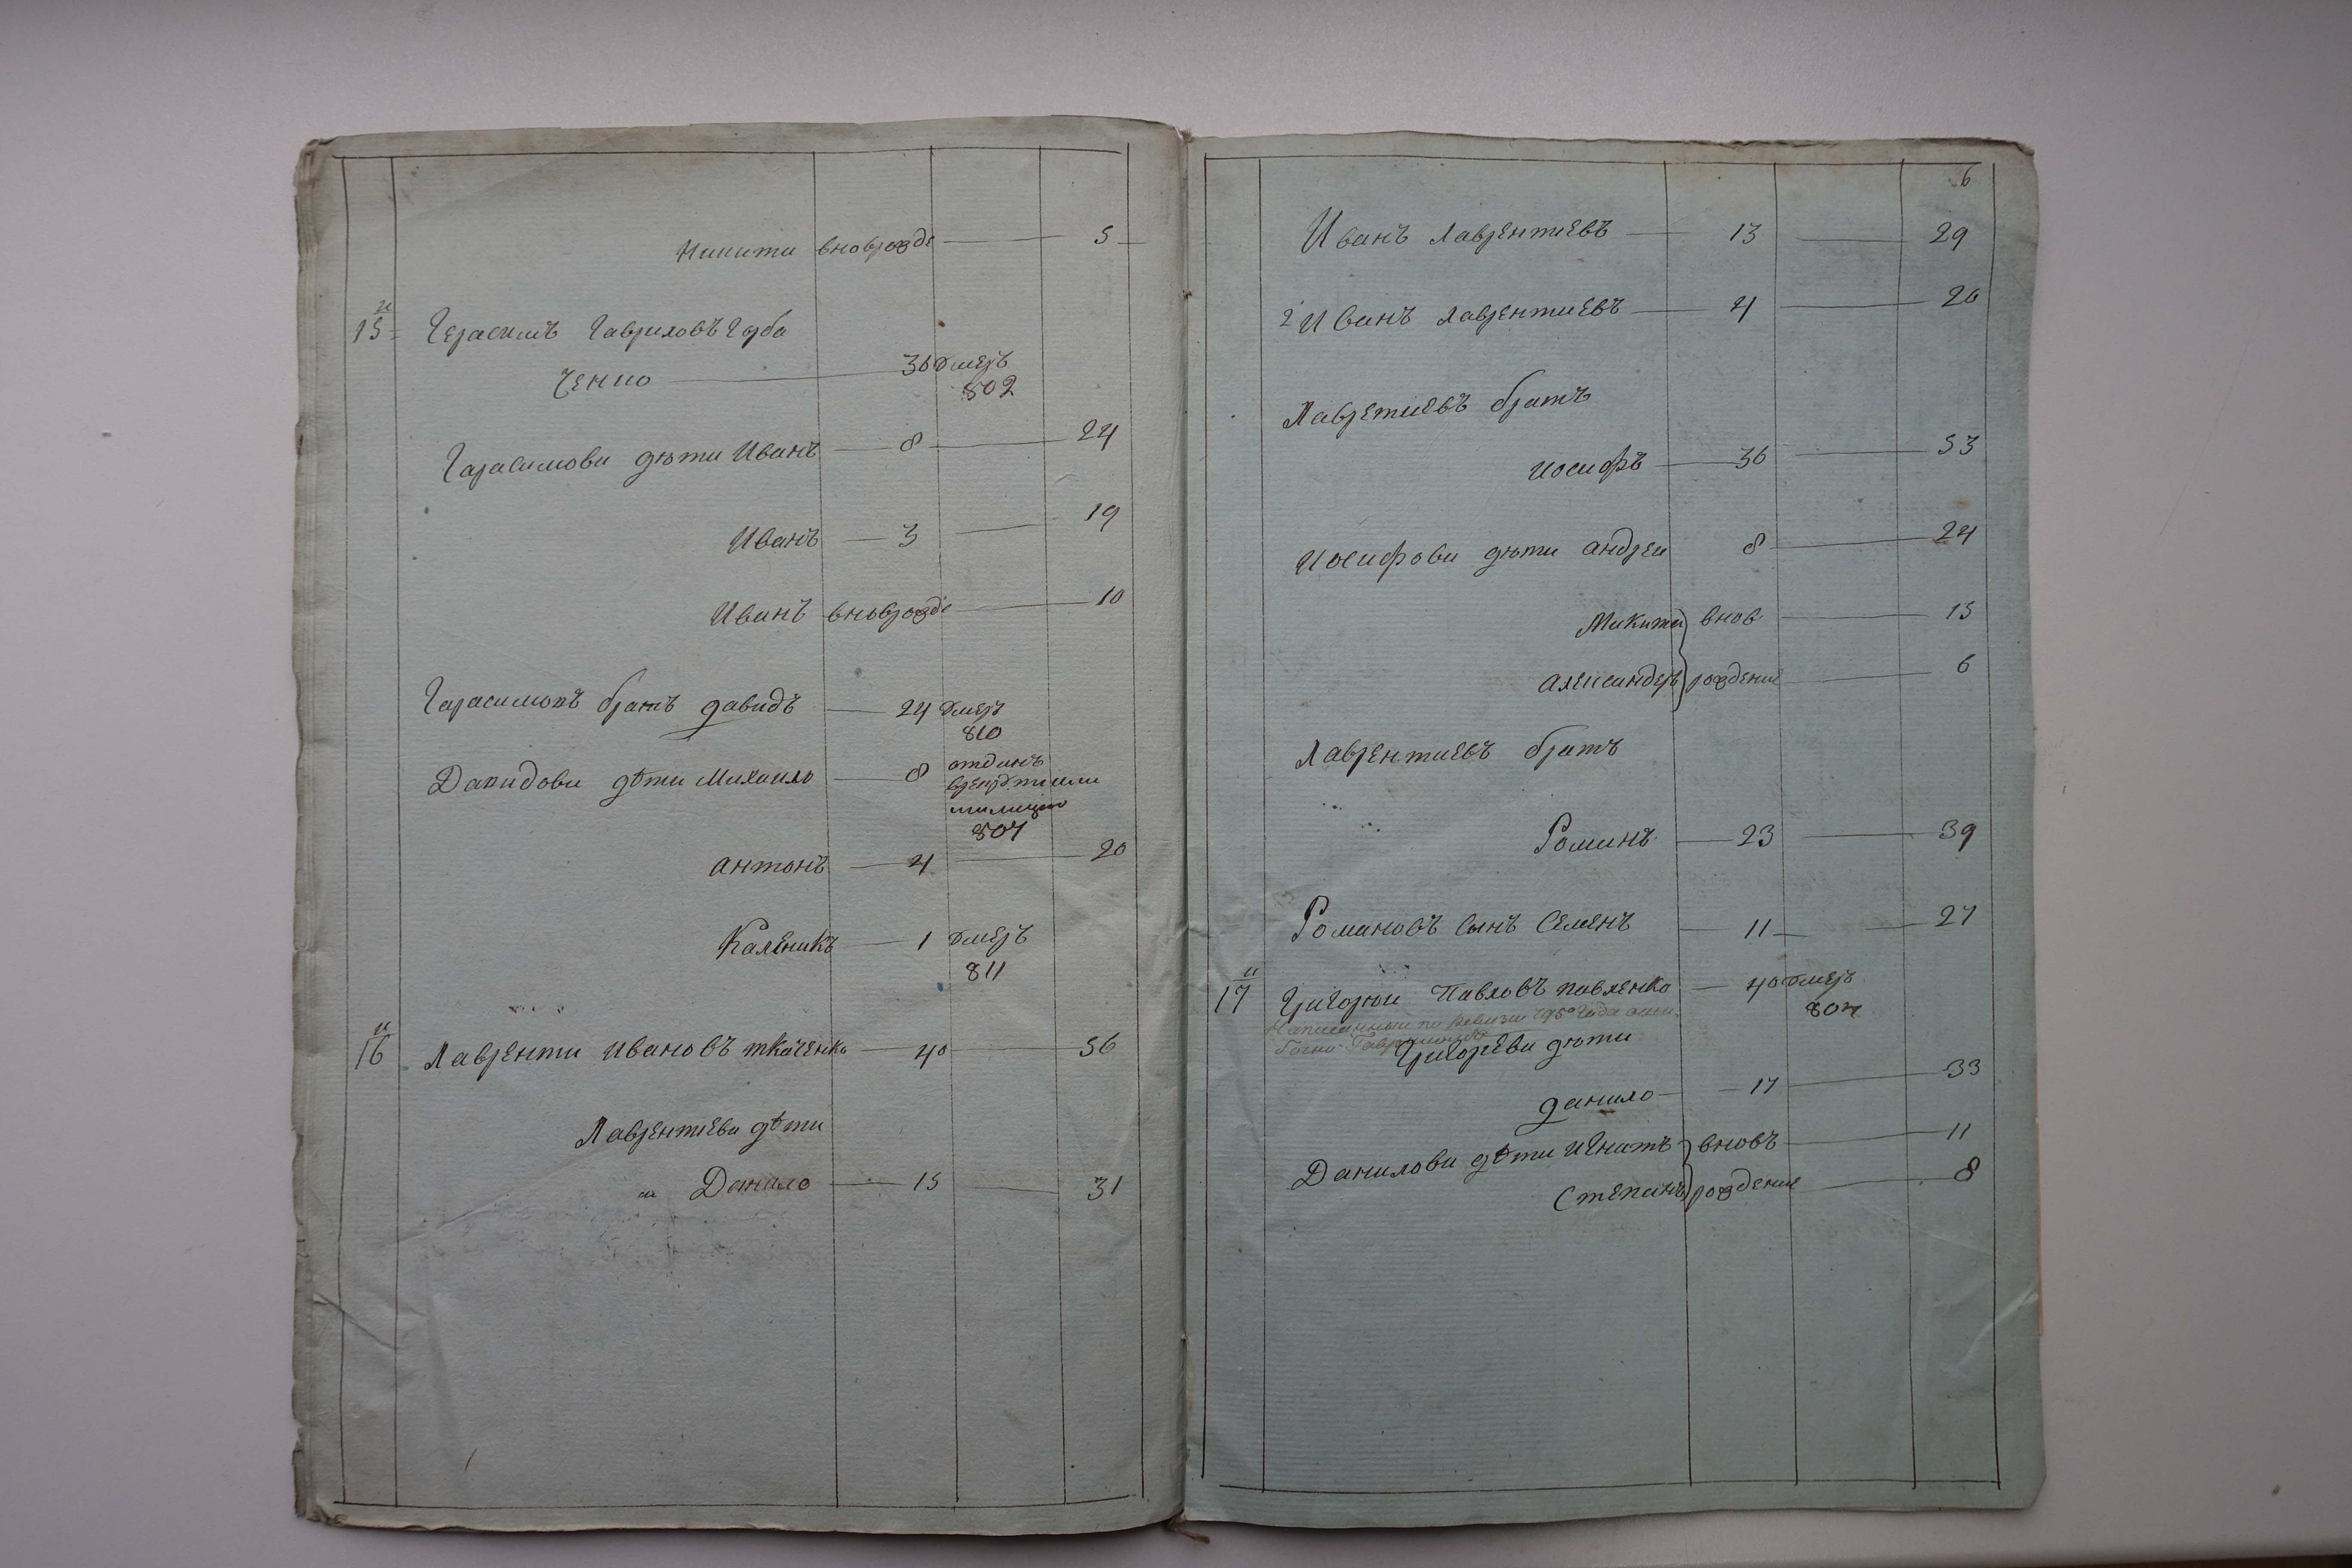 Никити вноврозде 5
15й Герасимъ Гавриловъ Горба
ченко 36 Умеръ
802
Гарасимови дѣти Иванъ 8 24
Иванъ 3 19
Иванъ вноврозде 10
Гарасимовъ братъ давидъ 24 Умеръ
810
Давидови дѣти Михаило 8 отданъ
807
антонъ 4 20
Каленикъ 1 Умеръ
811
16й Лавренти Ивановъ ткаченко 40 56
Лаврентиеви дѣти
Данило 15 31
6
Иванъ Лаврентиевъ 13 29
2й Иванъ Лаврентиевъ 4 20
Лавретиевъ братъ
иосифъ 36 53
Иосифови дѣти андреи 8 24
Микита внов 15
александеръ рождение 6
Лаврентиевъ братъ
Романъ 23 39
Романовъ сынъ Семенъ 11 27
17й Григории Павловъ павленко 40 Умеръ
807
Написанныи по ревизии 795º года оши
бочно Гавриловъ
Григорѣви дѣти
данило 17 33
Данилови дѣти игнатъ вновъ 11
Степанъ рождение 8